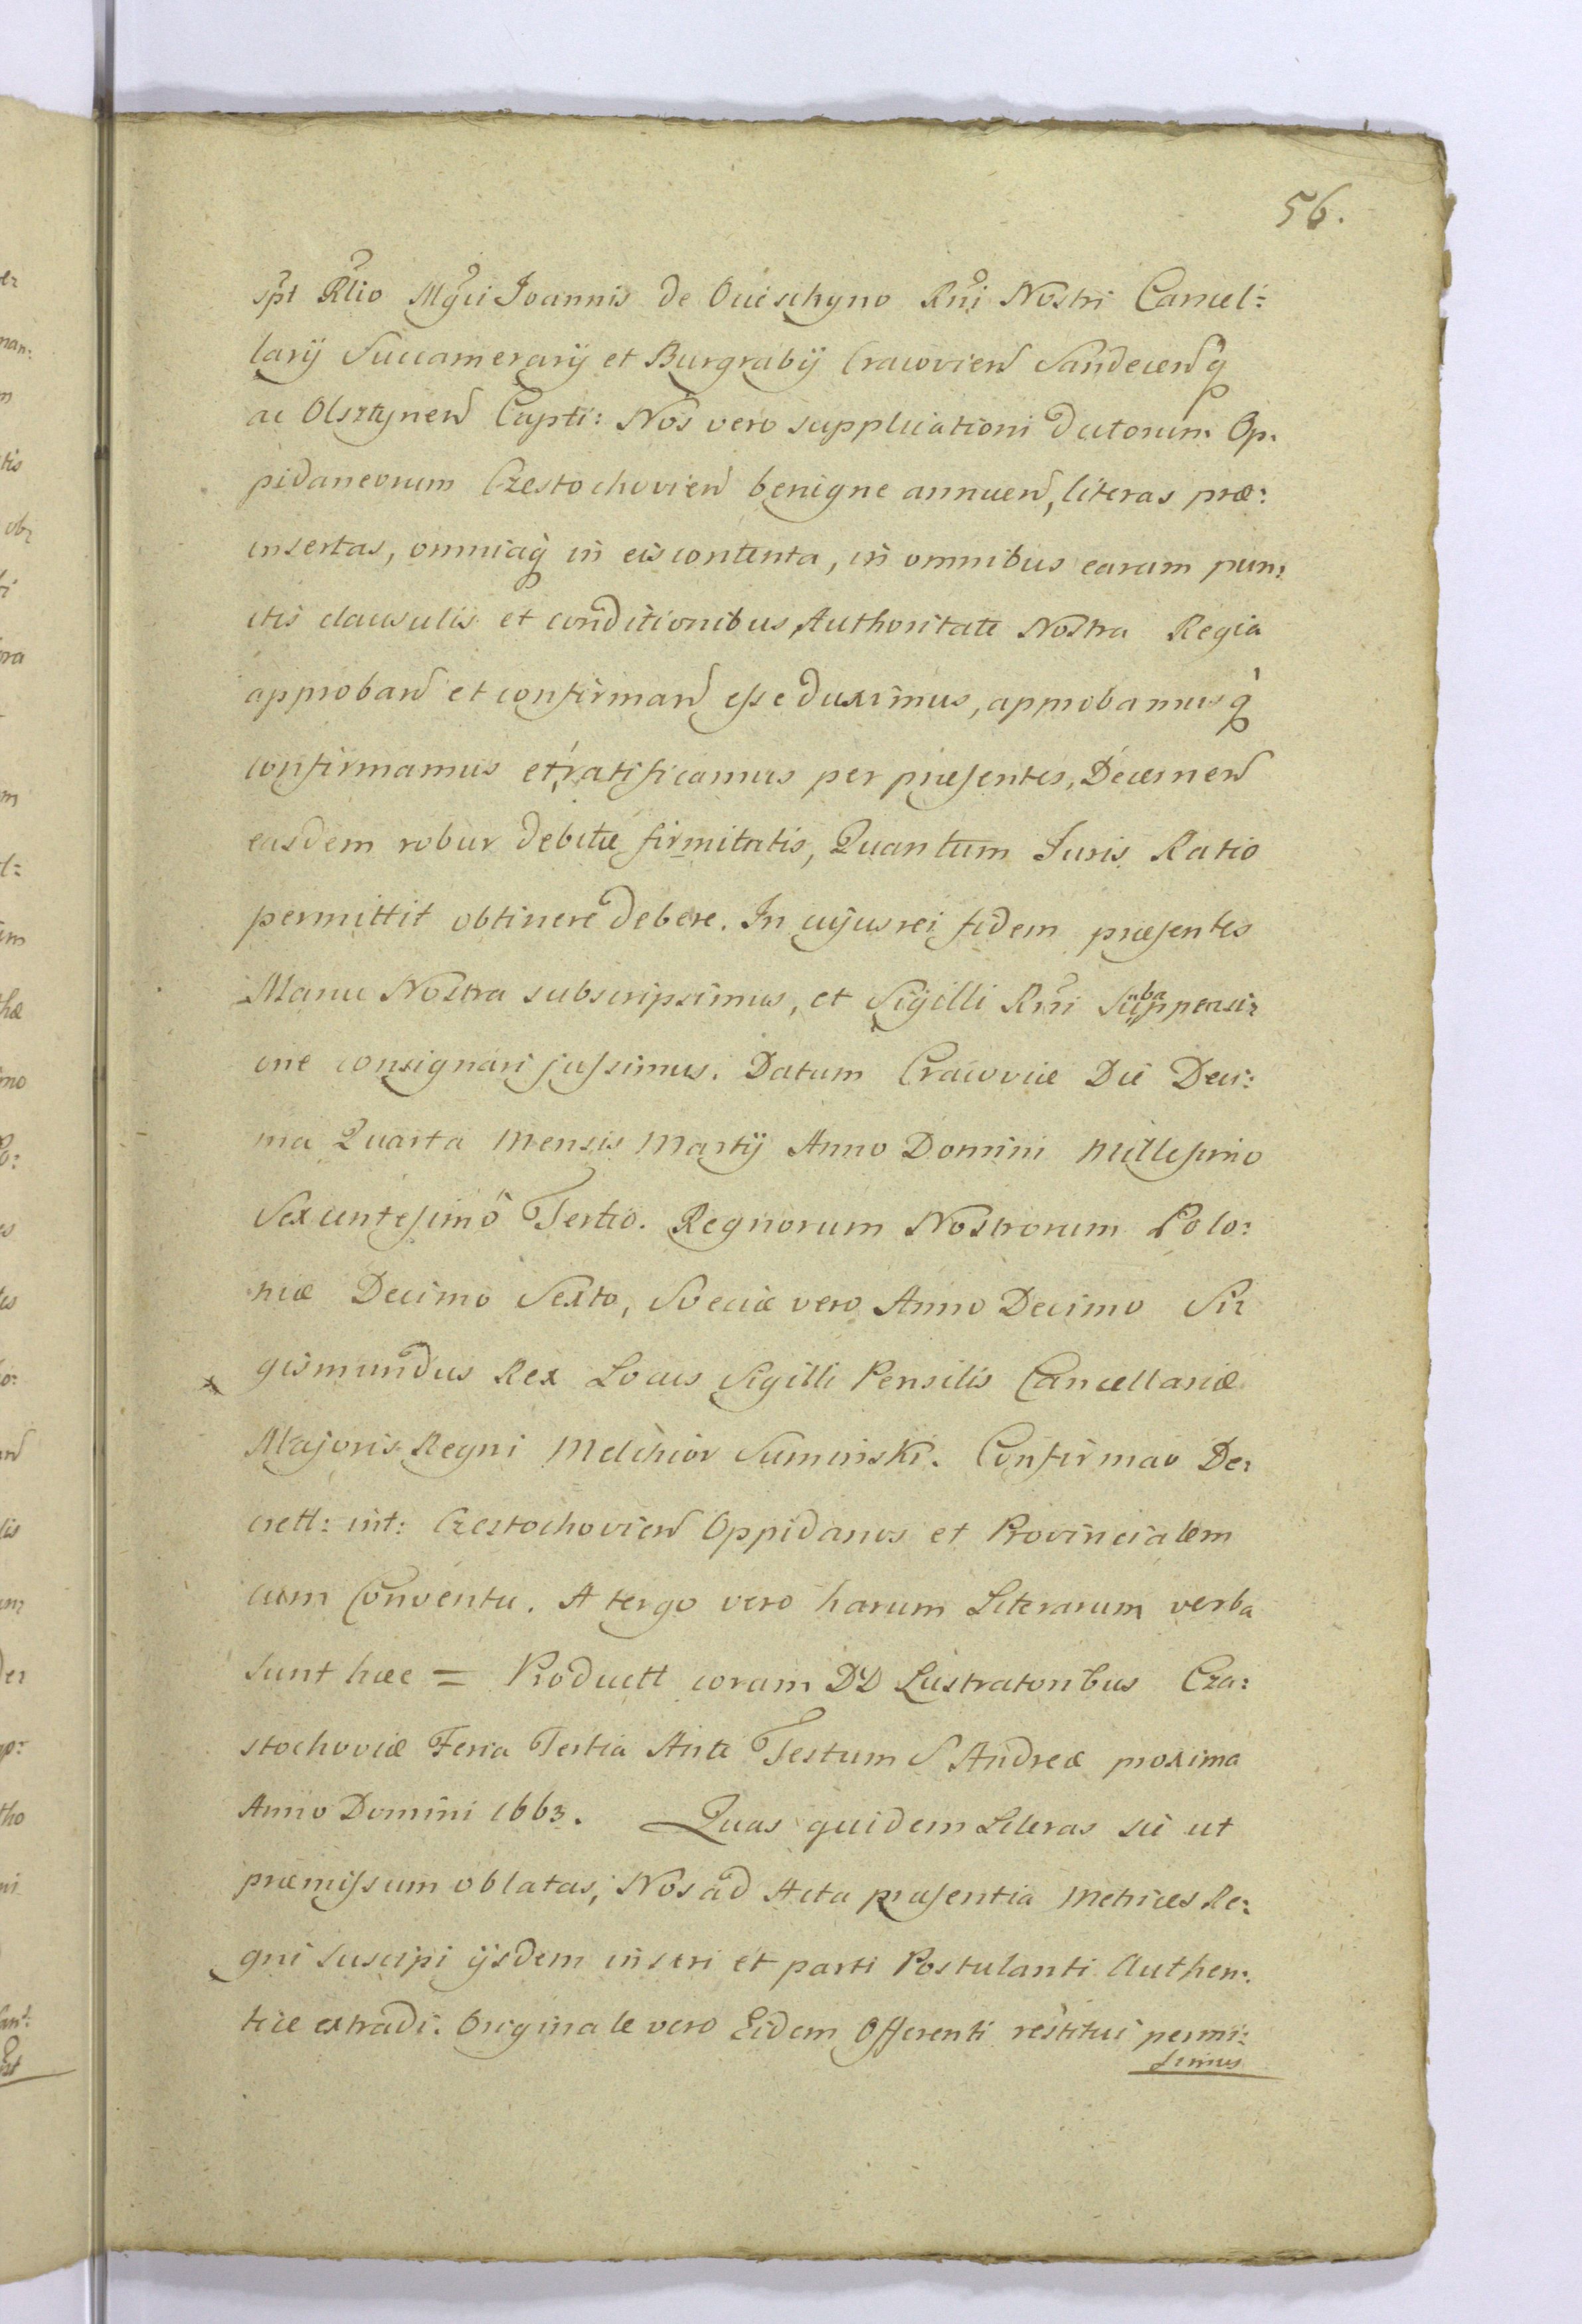 56.
spt Rlio Mgci Joannis de Ocieschyno Rni Nostri Cancel:
larij Succamerarij et Burgrabij Cracovien Sandecenq
ac Olsztynen Capti: Nos vero supplicationi dictorum Op:
pidaneorum Czestochovien benigne annuen, literas præ:
insertas, omniaq in eis contenta, in omnibus earum pun:
ctis clausulis et conditionibus, Authoritate Nostra Regia
approban et confirman esse duximus, approbamusq
confirmamus et ratificamus per præsentes, Decernen
easdem robur debitæ firmitatis, Quantum Juris Ratio
permittit obtinere debere. In cujus rei fidem præsentes
Manu Nostra subscripsimus, et Sigilli Rni Subappensi:
one consignari jussimus. Datum Cracoviæ Die Deci:
ma Quarta Mensis Martij Anno Domini Millesimo
Sexcentesimo Tertio. Regnorum Nostrorum Polo:
niæ Decimo Sexto, Sveciæ vero Anno Decimo Si:
gismundus Rex Locus Sigilli Pensilis Cancellariæ
Majoris Regni Melchior Suminski. Confirmao De:
crett: int: Czestochovien Oppidanos et Provincialem
cum Conventu. A tergo vero harum Literarum verba
sunt hæc = Productt coram DD Lustratoribus Cza:
stochoviæ Feria Tertia Ante Festum S Andreæ proxima
Anno Domini 1663. Quas quidem Literas sic ut
præmissum oblatas, Nos ad Acta præsentia Metrices Re:
gni suscipi ijsdem inseri et parti Postulanti Authen:
tice extradi. Originale vero Eidem Offerenti restitui permi:
simus